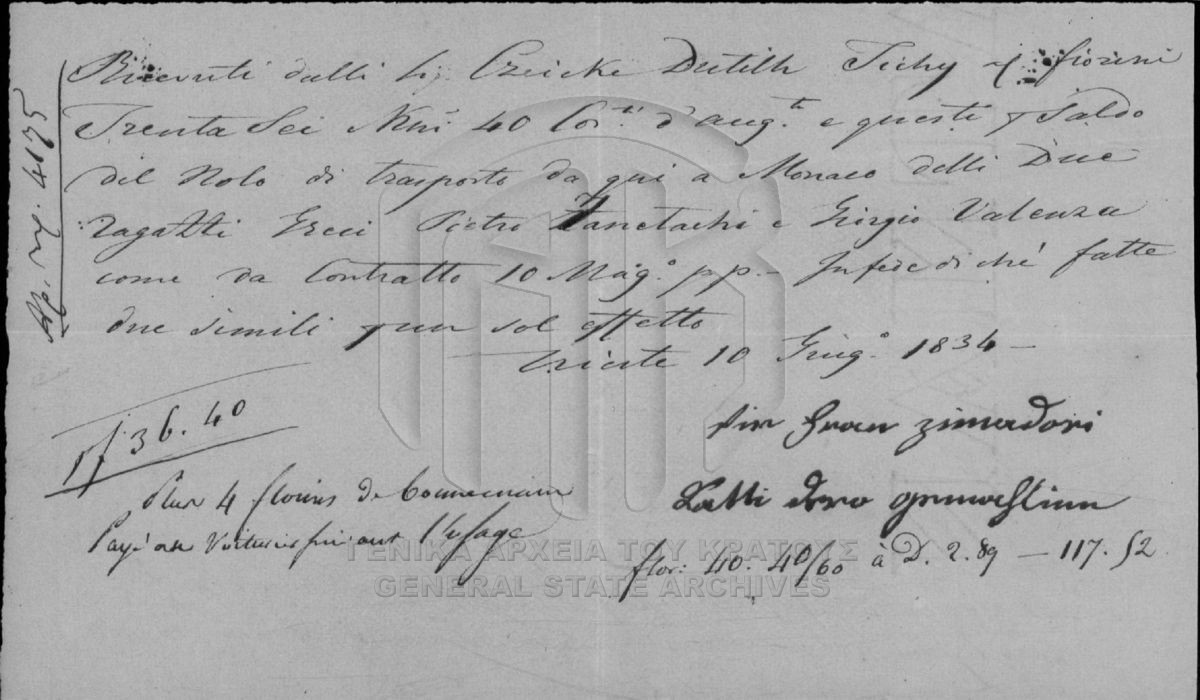 Ricevuti dalli Sig. Czeicke Dutilh Tichy q fiorini
Trenta Sei Kni 40 Cor.ti d'aug.ta e questi p Saldo
del Nolo di trasporto da qui a Monaco delli Due
ragatzi Greci Pietro Zanetachi e Girgio Valenza
come da Contratto 10 Mag.o p.p. – In fede di ché fatte
due simili p un sol effetto
Trieste 10 Giug.o 1834 –
ff 36.40
für Frau
Plus 4 florins de bonnemain
Payé au Voiturier suivant l'usage
flor: 40. 40/60 à D. 2.89 – 117.52
4195
ΓΕΝΙΚΑ ΑΡΧΕΙΑ ΤΟΥ ΚΡΑΤΟΥΣ
GENERAL STATE ARCHIVES